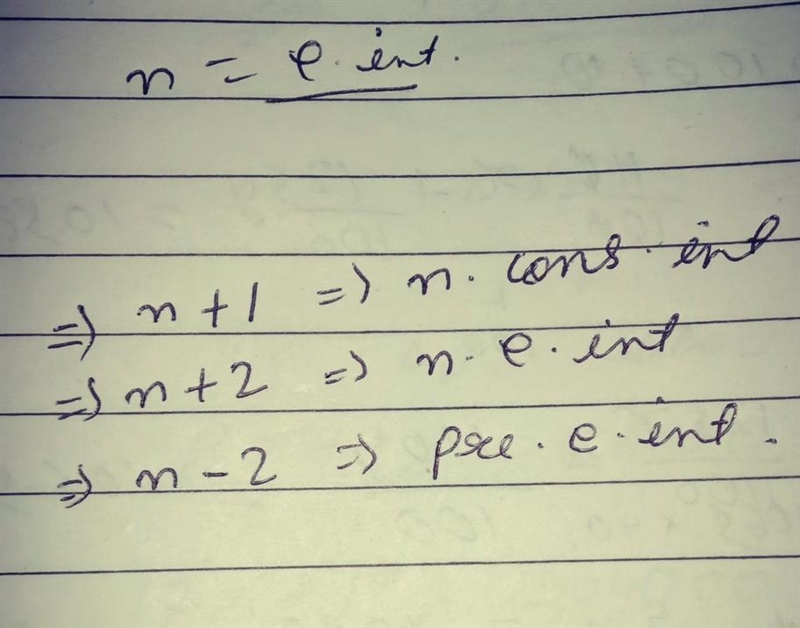 n = e. int.
=> n + 1 => n. cons. int
=> n + 2 => n. e. int
=> n - 2 => pre. e. int.